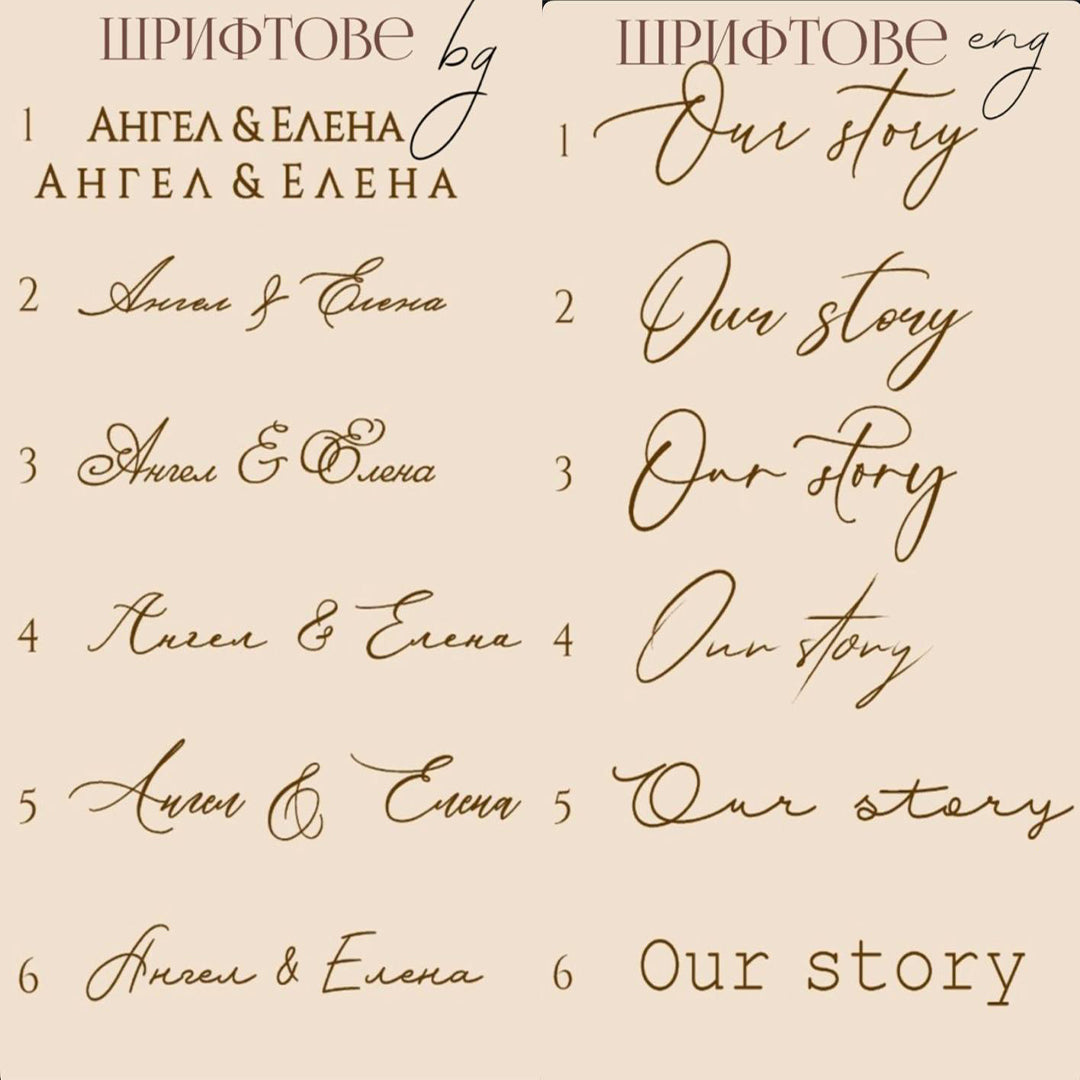 ШРИФТОВЕ bg
1 АНГЕЛ & ЕЛЕНА
АНГЕЛ & ЕЛЕНА
2 Ангел & Елена
3 Ангел & Елена
4 Ангел & Елена
5 Ангел & Елена
6 Ангел & Елена
ШРИФТОВЕ eng
1 Our story
2 Our story
3 Our story
4 Our story
5 Our story
6 Our story